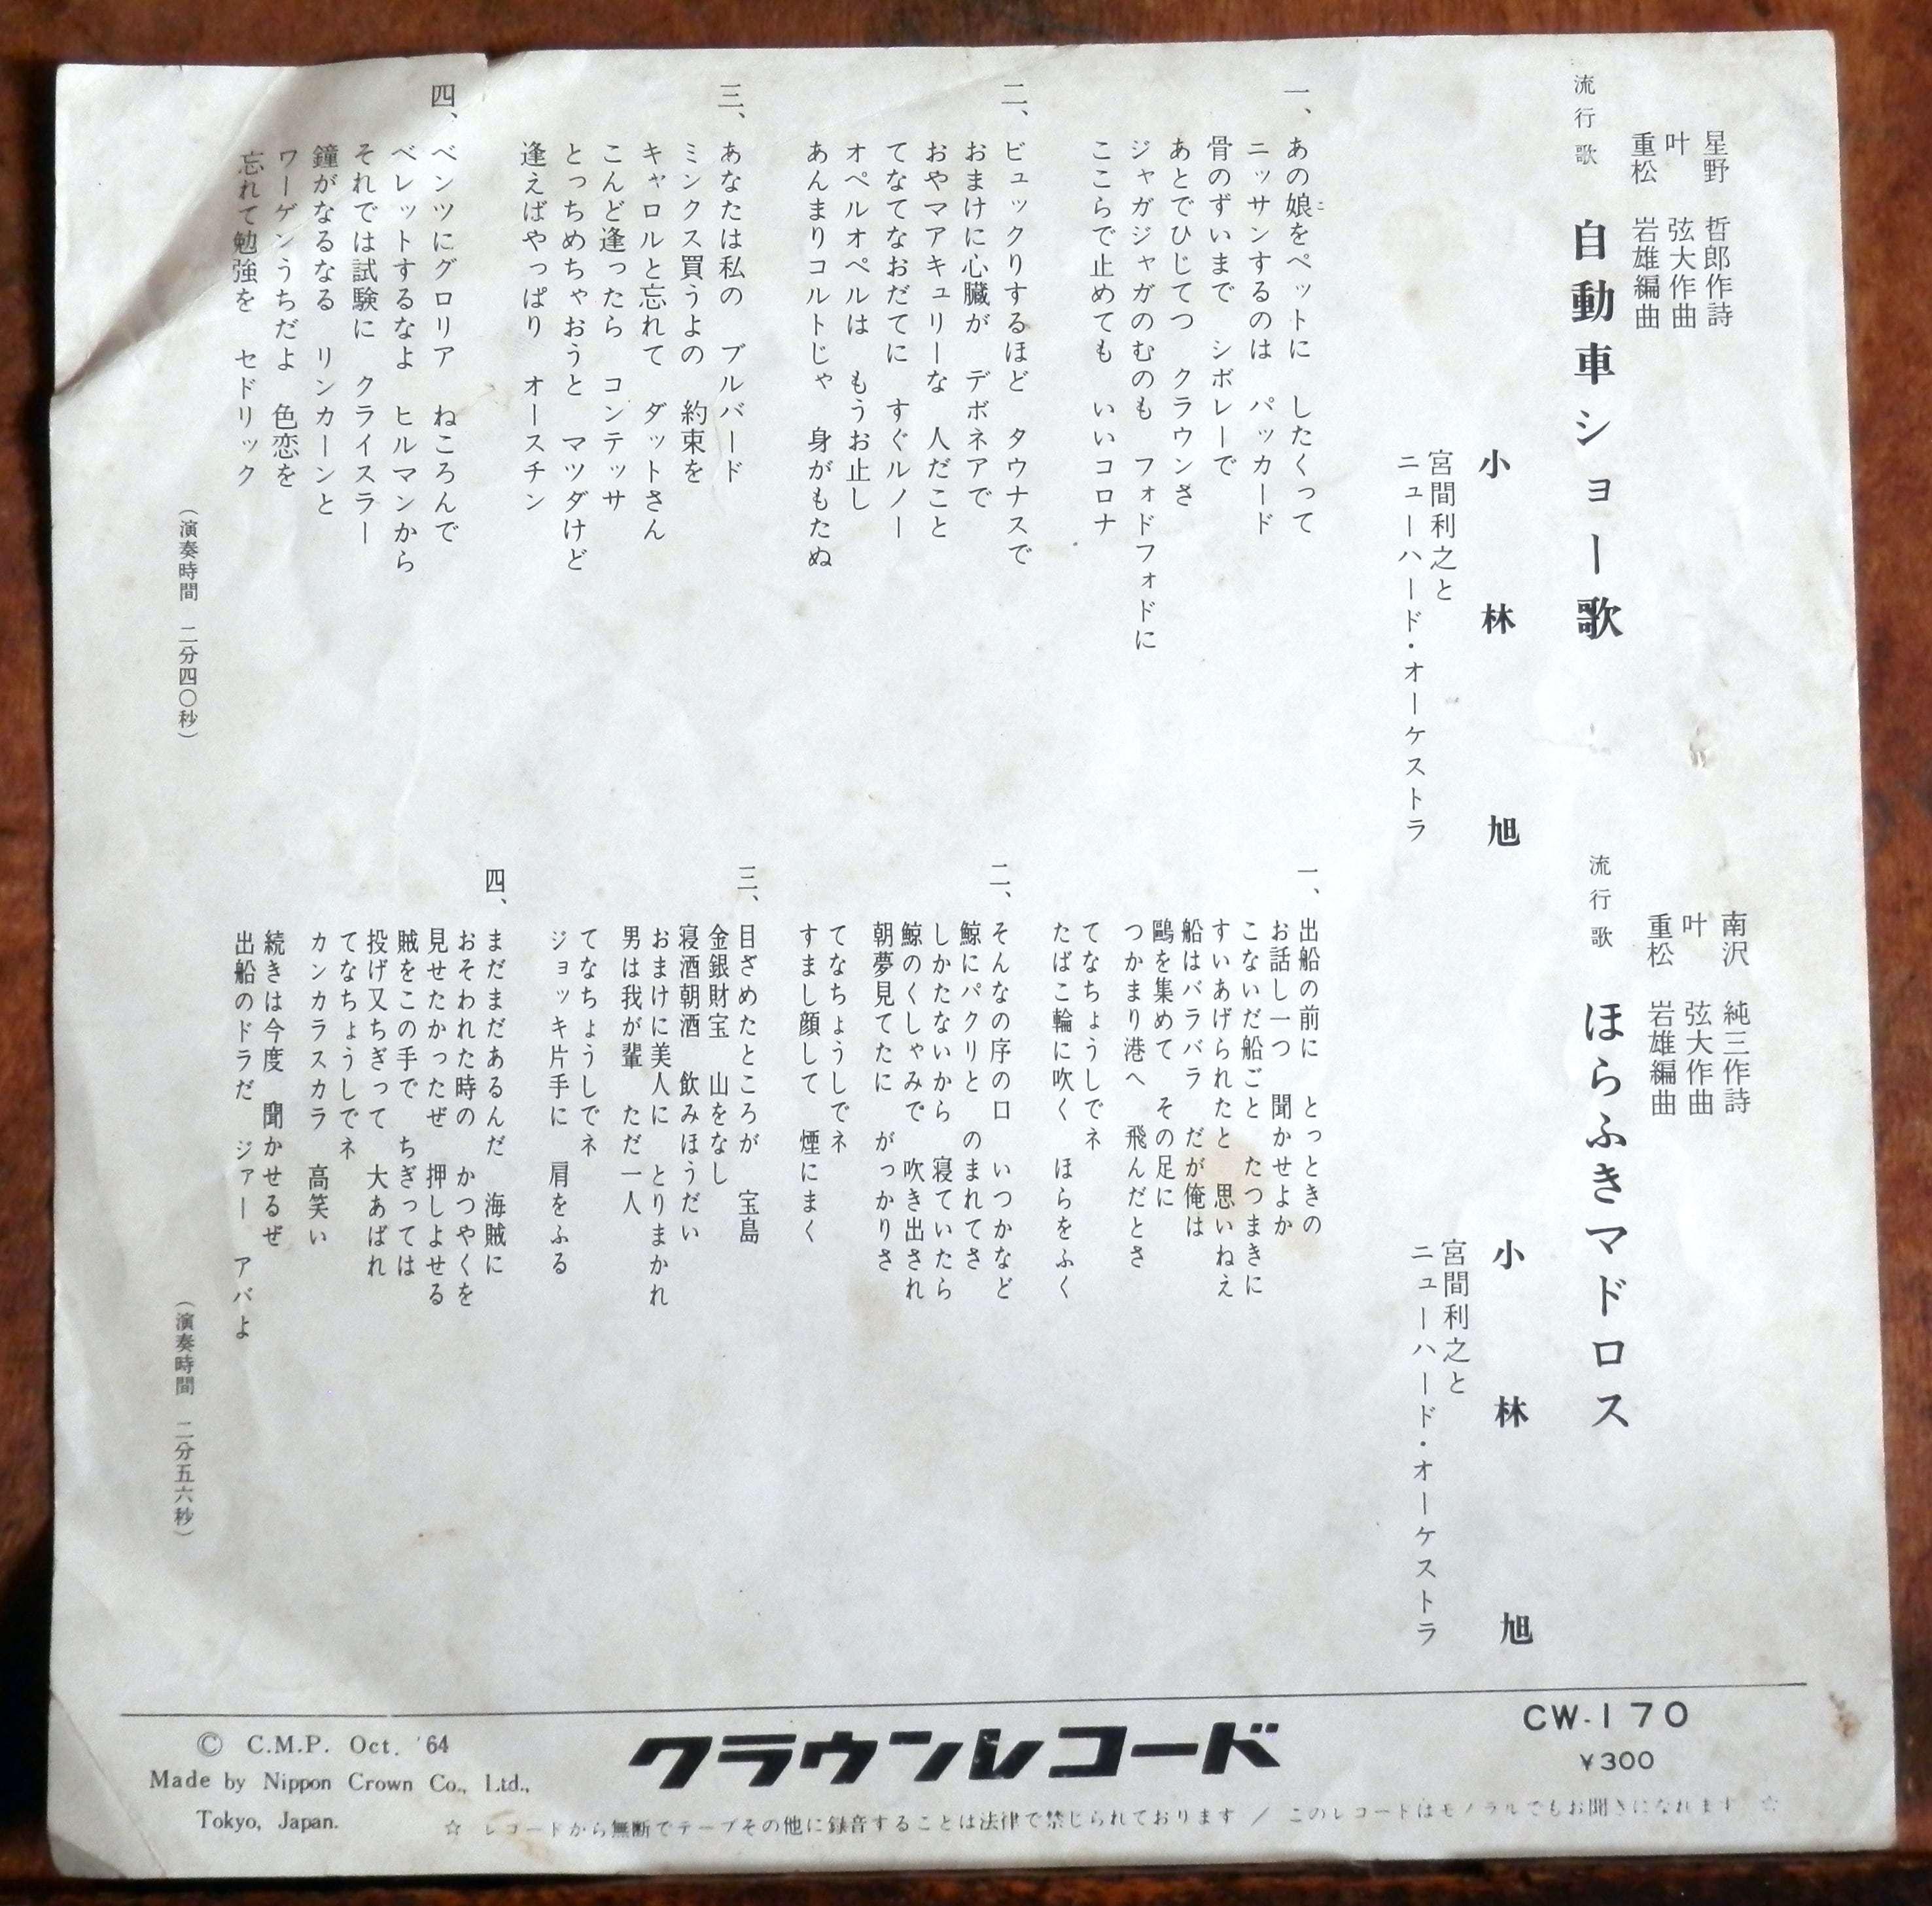 星野 哲郎作詩
叶 弦大作曲
重松 岩雄編曲
流行歌 自動車ショー歌
小林旭
宮間利之と
ニューハード・オーケストラ
一、あの娘をペットに したくって
コ
ニッサンするのは パッカード
骨のずいまで シボレーで
あとでひじてつ クラウンさ
ジャガジャガのむのも フォドフォドに
ここらで止めても いいコロナ
二、ビュックりするほど タウナスで
おまけに心臓が デボネアで
おやマアキュリーな 人だこと
てなてなおだてに すぐルノー
オペルオペルは もうお止し
あんまりコルトじゃ 身がもたぬ
三、あなたは私の ブルバード
ミンクス買うよの 約束を
キャロルと忘れて ダットさん
こんど逢ったら コンテッサ
とっちめちゃおうと マツダけど
逢えばやっぱり オースチン
四、ベンツにグロリア ねころんで
ベレットするなよ ヒルマンから
それでは試験に クライスラー
鐘がなるなる リンカーンと
ワーゲンうちだよ 色恋を
忘れて勉強を セドリック
(演奏時間 二分四〇秒)
南沢 純三作詩
叶 弦大作曲
重松 岩雄編曲
流行歌 ほらふきマドロス
小林旭
宮間利之と
ニューハード・オーケストラ
一、出船の前に とっときの
お話し一つ 聞かせよか
こないだ船ごと たつまきに
すいあげられたと 思いねえ
船はバラバラ だが俺は
鷗を集めて その足に
つかまり港へ 飛んだとさ
てなちょうしでネ
たばこ輪に吹く ほらをふく
二、そんなの序の口 いつかなど
鯨にパクリと のまれてさ
しかたないから 寝ていたら
鯨のくしゃみで 吹き出され
朝夢見てたに がっかりさ
てなちょうしでネ
すまし顔して 煙にまく
三、目ざめたところが 宝島
金銀財宝 山をなし
寝酒朝酒 飲みほうだい
おまけに美人に とりまかれ
男は我が輩 ただ一人
てなちょうしでネ
ジョッキ片手に 肩をふる
四、まだまだあるんだ 海賊に
おそわれた時の かつやくを
見せたかったぜ 押しよせる
賊をこの手で ちぎっては
投げ又ちぎって 大あばれ
てなちょうしでネ
カンカラスカラ 高笑い
続きは今度 聞かせるぜ
出船のドラだ ジァー アバよ
(演奏時間 二分五六秒)
© C.M.P. Oct. '64
Made by Nippon Crown Co., Ltd.,
Tokyo, Japan.
クラウンレコード
CW-170
¥300
☆ レコードから無断でテープその他に録音することは法律で禁じられております / このレコードはモノラルでもお聞きになれます ☆